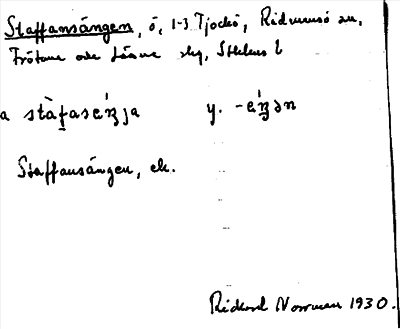 Staffansängen, ö, 1-3 Tjockö, Ridmansö sn,
Frötuna och Länna skg, Sthlms l
a stàfase´ŋja y. -e´ŋən
Staffansängen, ek.
Rickard Norrman 1930.